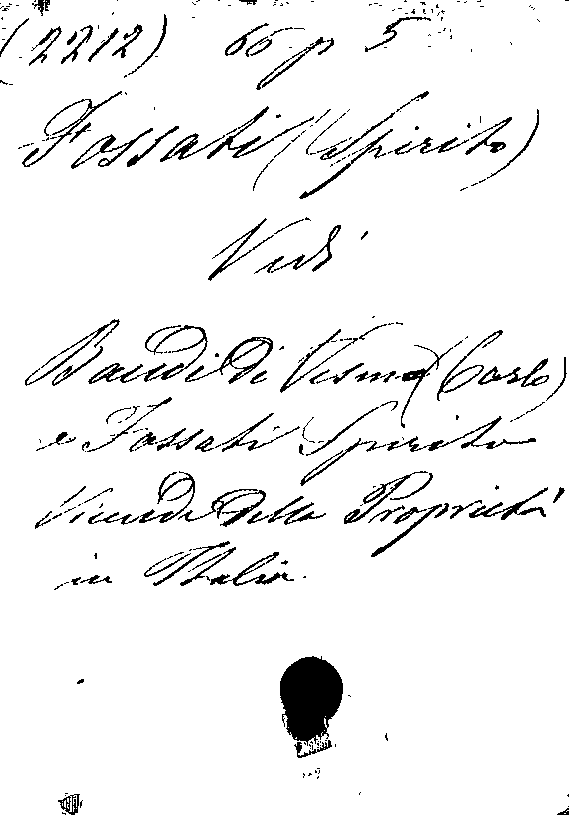 (2212) 66 p 5
Fossati (Spirito)
Vedi
Baudi Di Vesme (Carlo)
e Fossati Spirito
Vicende Della Proprietà
in Italia.